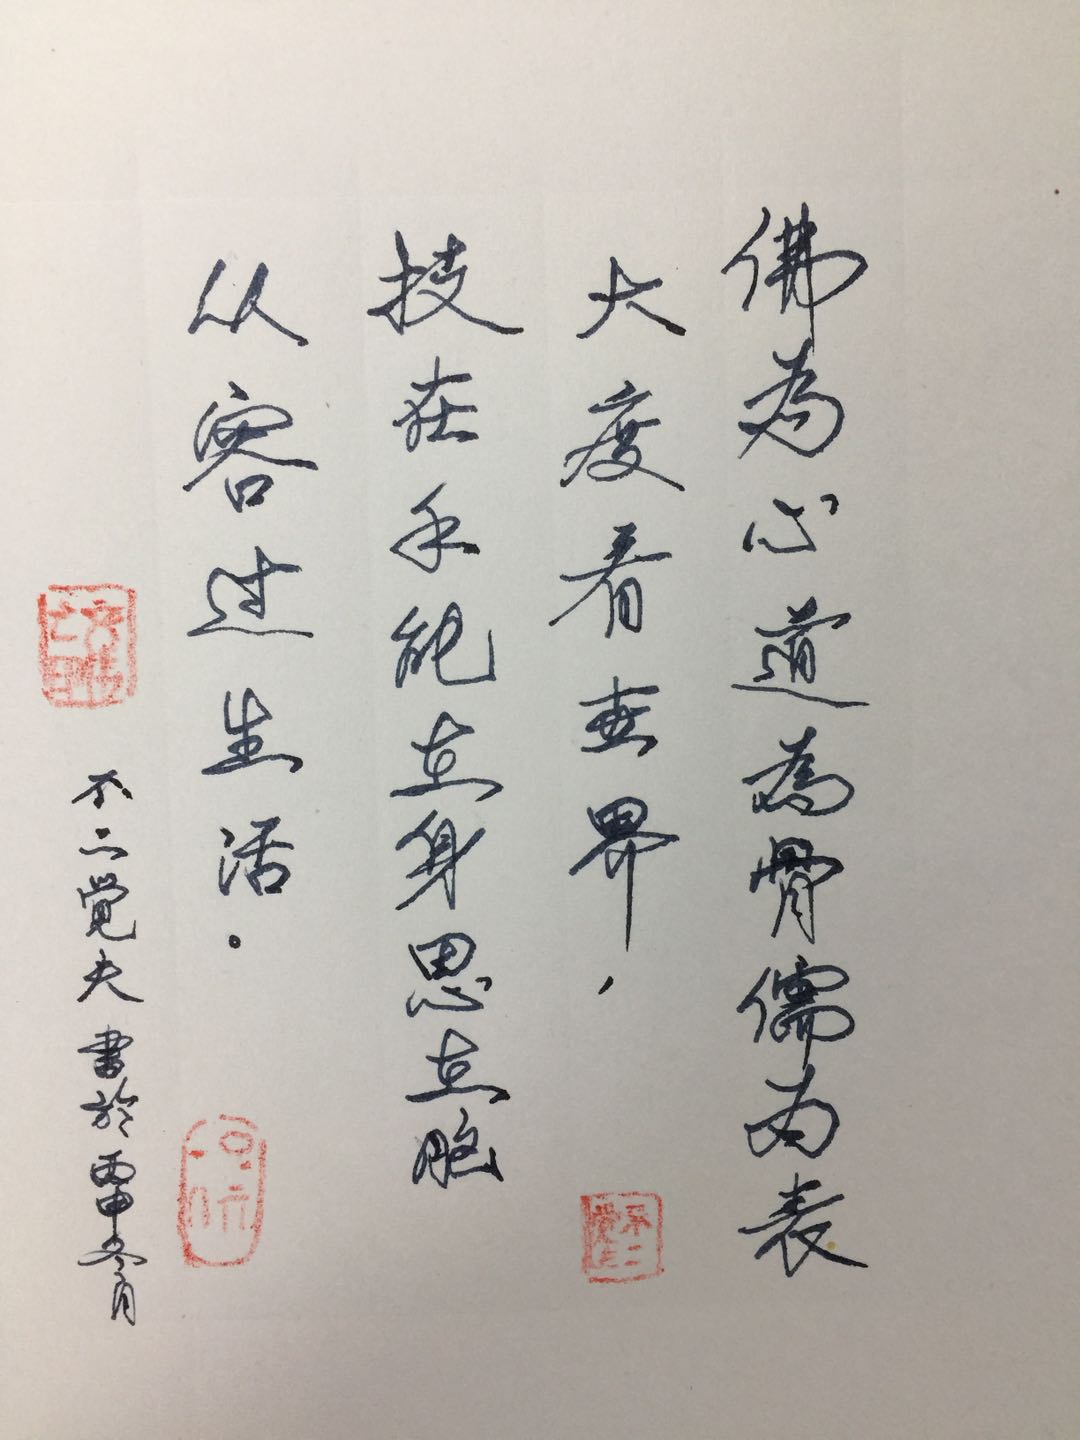 佛为心道為骨儒为表
大度看世界，
技在手能在身思在脑
从容过生活.
不二覺夫書於丙申冬月